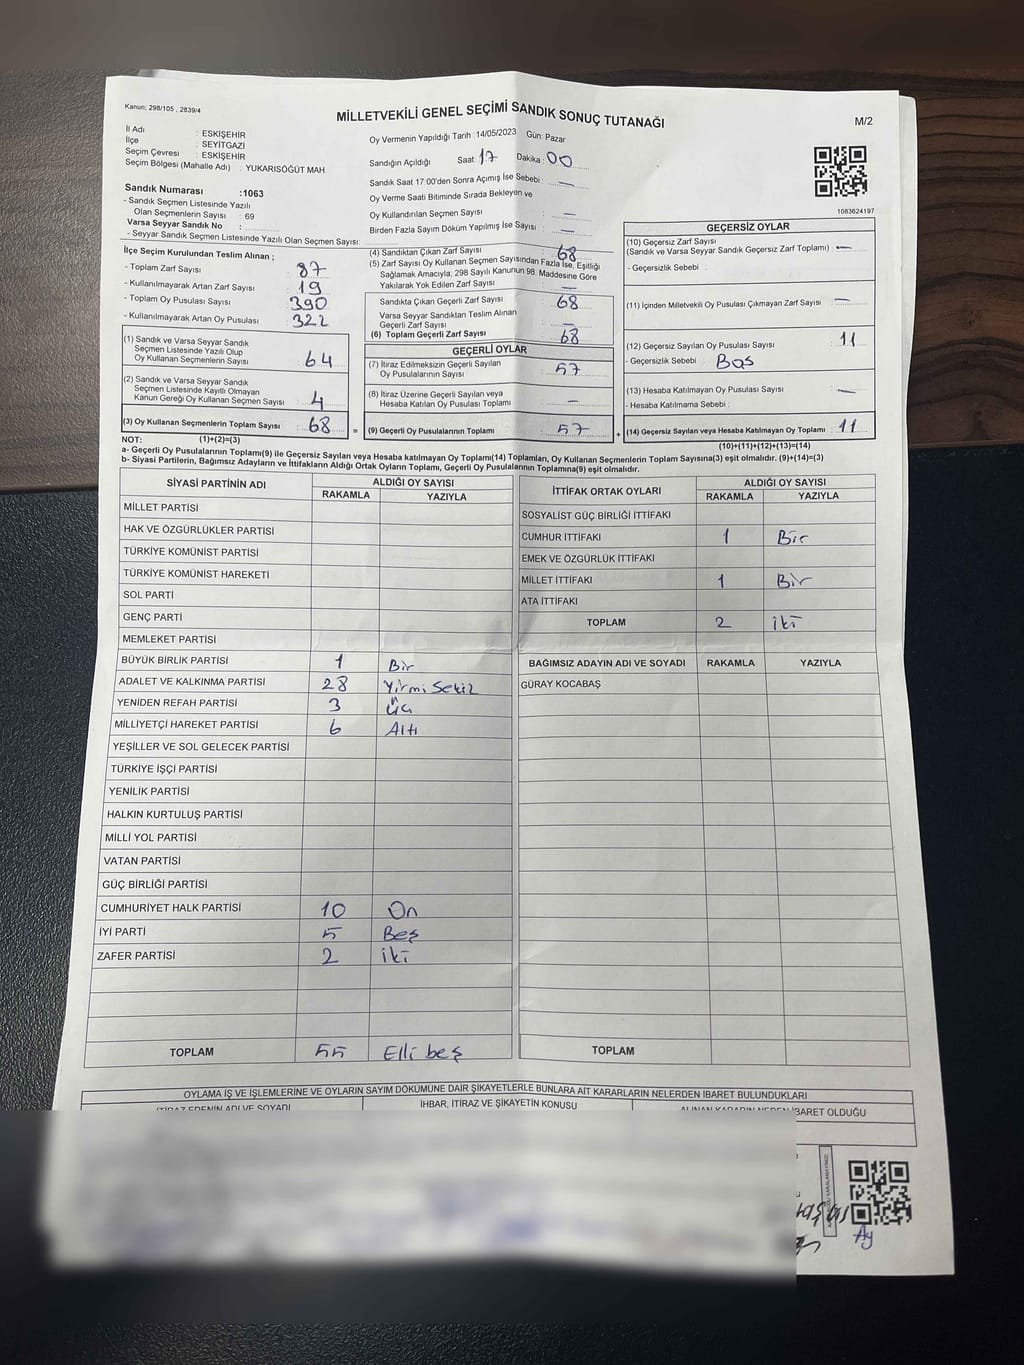 Kanun: 298/105 , 2839/4
MİLLETVEKİLİ GENEL SEÇİMİ SANDIK SONUÇ TUTANAĞI
M/2
İl Adı : ESKİŞEHİR
İlçe : SEYİTGAZİ
Seçim Çevresi : ESKİŞEHİR
Seçim Bölgesi (Mahalle Adı) : YUKARISÖĞÜT MAH
Sandık Numarası :1063
- Sandık Seçmen Listesinde Yazılı
Olan Seçmenlerin Sayısı : 69
Varsa Seyyar Sandık No :
- Seyyar Sandık Seçmen Listesinde Yazılı Olan Seçmen Sayısı:
Oy Vermenin Yapıldığı Tarih : 14/05/2023 Gün: Pazar
Sandığın Açıldığı Saat 17 Dakika : 00
Sandık Saat 17:00'den Sonra Açımış İse Sebebi : —
Oy Verme Saati Bitiminde Sırada Bekleyen ve
Oy Kullandırılan Seçmen Sayısı —
Birden Fazla Sayım Döküm Yapılmış İse Sayısı : —
1083624197
İlçe Seçim Kurulundan Teslim Alınan ;
- Toplam Zarf Sayısı : 87
- Kullanılmayarak Artan Zarf Sayısı : 19
- Toplam Oy Pusulası Sayısı : 390
- Kullanılmayarak Artan Oy Pusulası : 322
(1) Sandık ve Varsa Seyyar Sandık
Seçmen Listesinde Yazılı Olup
Oy Kullanan Seçmenlerin Sayısı : 64
(2) Sandık ve Varsa Seyyar Sandık
Seçmen Listesinde Kayıtlı Olmayan
Kanun Gereği Oy Kullanan Seçmen Sayısı : 4
(3) Oy Kullanan Seçmenlerin Toplam Sayısı : 68
(4) Sandıktan Çıkan Zarf Sayısı : 68
(5) Zarf Sayısı Oy Kullanan Seçmen Sayısından Fazla İse, Eşitliği
Sağlamak Amacıyla, 298 Sayılı Kanunun 98. Maddesine Göre
Yakılarak Yok Edilen Zarf Sayısı : —
Sandıkta Çıkan Geçerli Zarf Sayısı : 68
Varsa Seyyar Sandıktan Teslim Alınan
Geçerli Zarf Sayısı : —
(6) Toplam Geçerli Zarf Sayısı : 68
GEÇERLİ OYLAR
(7) İtiraz Edilmeksizin Geçerli Sayılan
Oy Pusulalarının Sayısı : 57
(8) İtiraz Üzerine Geçerli Sayılan veya
Hesaba Katılan Oy Pusulası Toplamı : —
= (9) Geçerli Oy Pusulalarının Toplamı : 57
GEÇERSİZ OYLAR
(10) Geçersiz Zarf Sayısı
(Sandık ve Varsa Seyyar Sandık Geçersiz Zarf Toplamı) : —
- Geçersizlik Sebebi :
(11) İçinden Milletvekili Oy Pusulası Çıkmayan Zarf Sayısı : —
(12) Geçersiz Sayılan Oy Pusulası Sayısı : 11
- Geçersizlik Sebebi : Boş
(13) Hesaba Katılmayan Oy Pusulası Sayısı : —
- Hesaba Katılmama Sebebi :
+ (14) Geçersiz Sayılan veya Hesaba Katılmayan Oy Toplamı : 11
NOT: (1)+(2)=(3)
(10)+(11)+(12)+(13)=(14)
a- Geçerli Oy Pusulalarının Toplamı(9) ile Geçersiz Sayılan veya Hesaba katılmayan Oy Toplamı(14) Toplamları, Oy Kullanan Seçmenlerin Toplam Sayısına(3) eşit olmalıdır. (9)+(14)=(3)
b- Siyasi Partilerin, Bağımsız Adayların ve İttifakların Aldığı Ortak Oyların Toplamı, Geçerli Oy Pusulalarının Toplamına(9) eşit olmalıdır.
SİYASİ PARTİNİN ADI ALDIĞI OY SAYISI
RAKAMLA YAZIYLA
MİLLET PARTİSİ
HAK VE ÖZGÜRLÜKLER PARTİSİ
TÜRKİYE KOMÜNİST PARTİSİ
TÜRKİYE KOMÜNİST HAREKETİ
SOL PARTİ
GENÇ PARTİ
MEMLEKET PARTİSİ
BÜYÜK BİRLİK PARTİSİ 1 Bir
ADALET VE KALKINMA PARTİSİ 28 Yirmi Sekiz
YENİDEN REFAH PARTİSİ 3 Üç
MİLLİYETÇİ HAREKET PARTİSİ 6 Altı
YEŞİLLER VE SOL GELECEK PARTİSİ
TÜRKİYE İŞÇİ PARTİSİ
YENİLİK PARTİSİ
HALKIN KURTULUŞ PARTİSİ
MİLLİ YOL PARTİSİ
VATAN PARTİSİ
GÜÇ BİRLİĞİ PARTİSİ
CUMHURİYET HALK PARTİSİ 10 On
İYİ PARTİ 5 Beş
ZAFER PARTİSİ 2 iki
TOPLAM 55 Elli beş
İTTİFAK ORTAK OYLARI ALDIĞI OY SAYISI
RAKAMLA YAZIYLA
SOSYALİST GÜÇ BİRLİĞİ İTTİFAKI
CUMHUR İTTİFAKI 1 Bir
EMEK VE ÖZGÜRLÜK İTTİFAKI
MİLLET İTTİFAKI 1 Bir
ATA İTTİFAKI
TOPLAM 2 iki
BAĞIMSIZ ADAYIN ADI VE SOYADI RAKAMLA YAZIYLA
GÜRAY KOCABAŞ
TOPLAM
OYLAMA İŞ VE İŞLEMLERİNE VE OYLARIN SAYIM DÖKÜMÜNE DAİR ŞİKAYETLERLE BUNLARA AİT KARARLARIN NELERDEN İBARET BULUNDUKLARI
İTİRAZ EDENİN ADI VE SOYADI İHBAR, İTİRAZ VE ŞİKAYETİN KONUSU ALINAN KARARIN NEDEN İBARET OLDUĞU
Ay